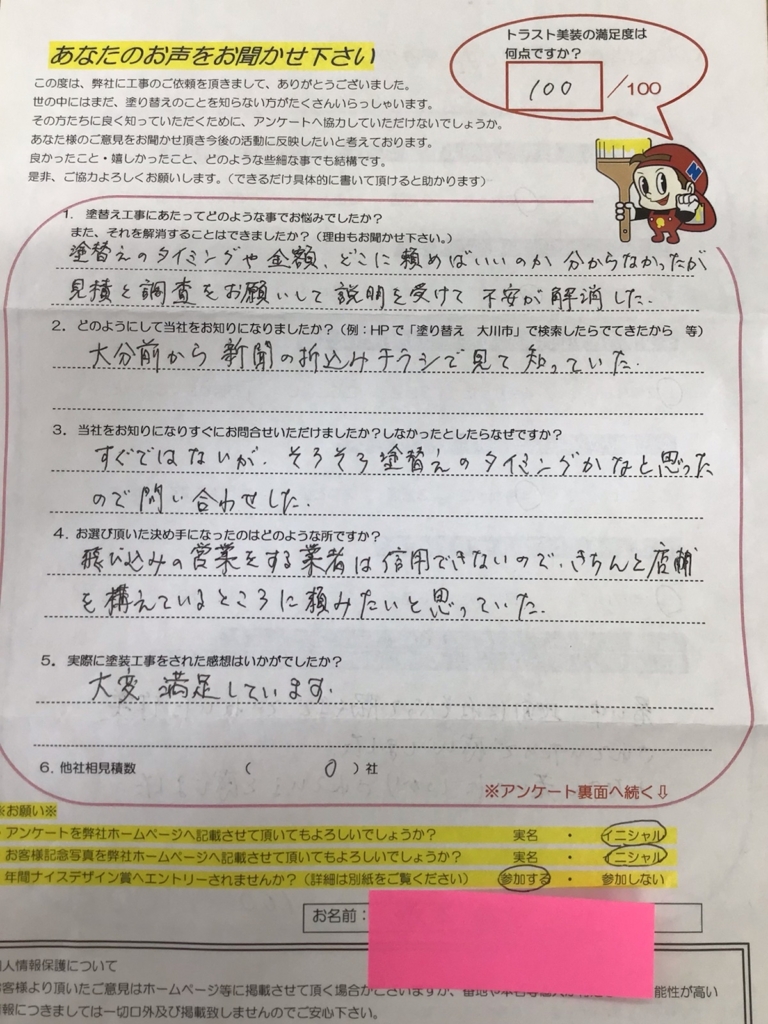 あなたのお声をお聞かせ下さい
トラスト美装の満足度は
何点ですか?
100/100
この度は、弊社に工事のご依頼を頂きまして、ありがとうございました。
世の中にはまだ、塗り替えのことを知らない方がたくさんいらっしゃいます。
その方たちに良く知っていただくために、アンケートへ協力していただけないでしょうか。
あなた様のご意見をお聞かせ頂き今後の活動に反映したいと考えております。
良かったこと・嬉しかったこと、どのような些細な事でも結構です。
是非、ご協力よろしくお願いします。(できるだけ具体的に書いて頂けると助かります)
N
1. 塗替え工事にあたってどのような事でお悩みでしたか?
また、それを解消することはできましたか?(理由もお聞かせ下さい。)
塗替えのタイミングや金額、どこに頼めばいいのか分からなかったが
見積と調査をお願いして説明を受けて不安が解消した.
2. どのようにして当社をお知りになりましたか?(例:HPで「塗り替え 大川市」で検索したらでてきたから 等)
大分前から新聞の折込みチラシで見て知っていた.
3. 当社をお知りになりすぐにお問合せいただけましたか?しなかったとしたらなぜですか?
すぐではないが、そろそろ塗替えのタイミングかなと思った
ので問い合わせした.
4. お選び頂いた決め手になったのはどのような所ですか?
飛び込みの営業をする業者は信用できないので、きちんと店舗
を構えているところに頼みたいと思っていた.
5. 実際に塗装工事をされた感想はいかがでしたか?
大変満足しています.
6. 他社相見積数 ( 0 )社
※アンケート裏面へ続く⇩
※お願い※
アンケートを弊社ホームページへ記載させて頂いてもよろしいでしょうか? 実名 ・ イニシャル
お客様記念写真を弊社ホームページへ記載させて頂いてもよろしいでしょうか? 実名 ・ イニシャル
年間ナイスデザイン賞へエントリーされませんか?(詳細は別紙をご覧ください) 参加する ・ 参加しない
お名前:
人情報保護について
客様より頂いたご意見はホームページ等に掲載させて頂く場合がございますが、 能性が高い
報につきましては一切口外及び掲載致しませんのでご安心下さい。